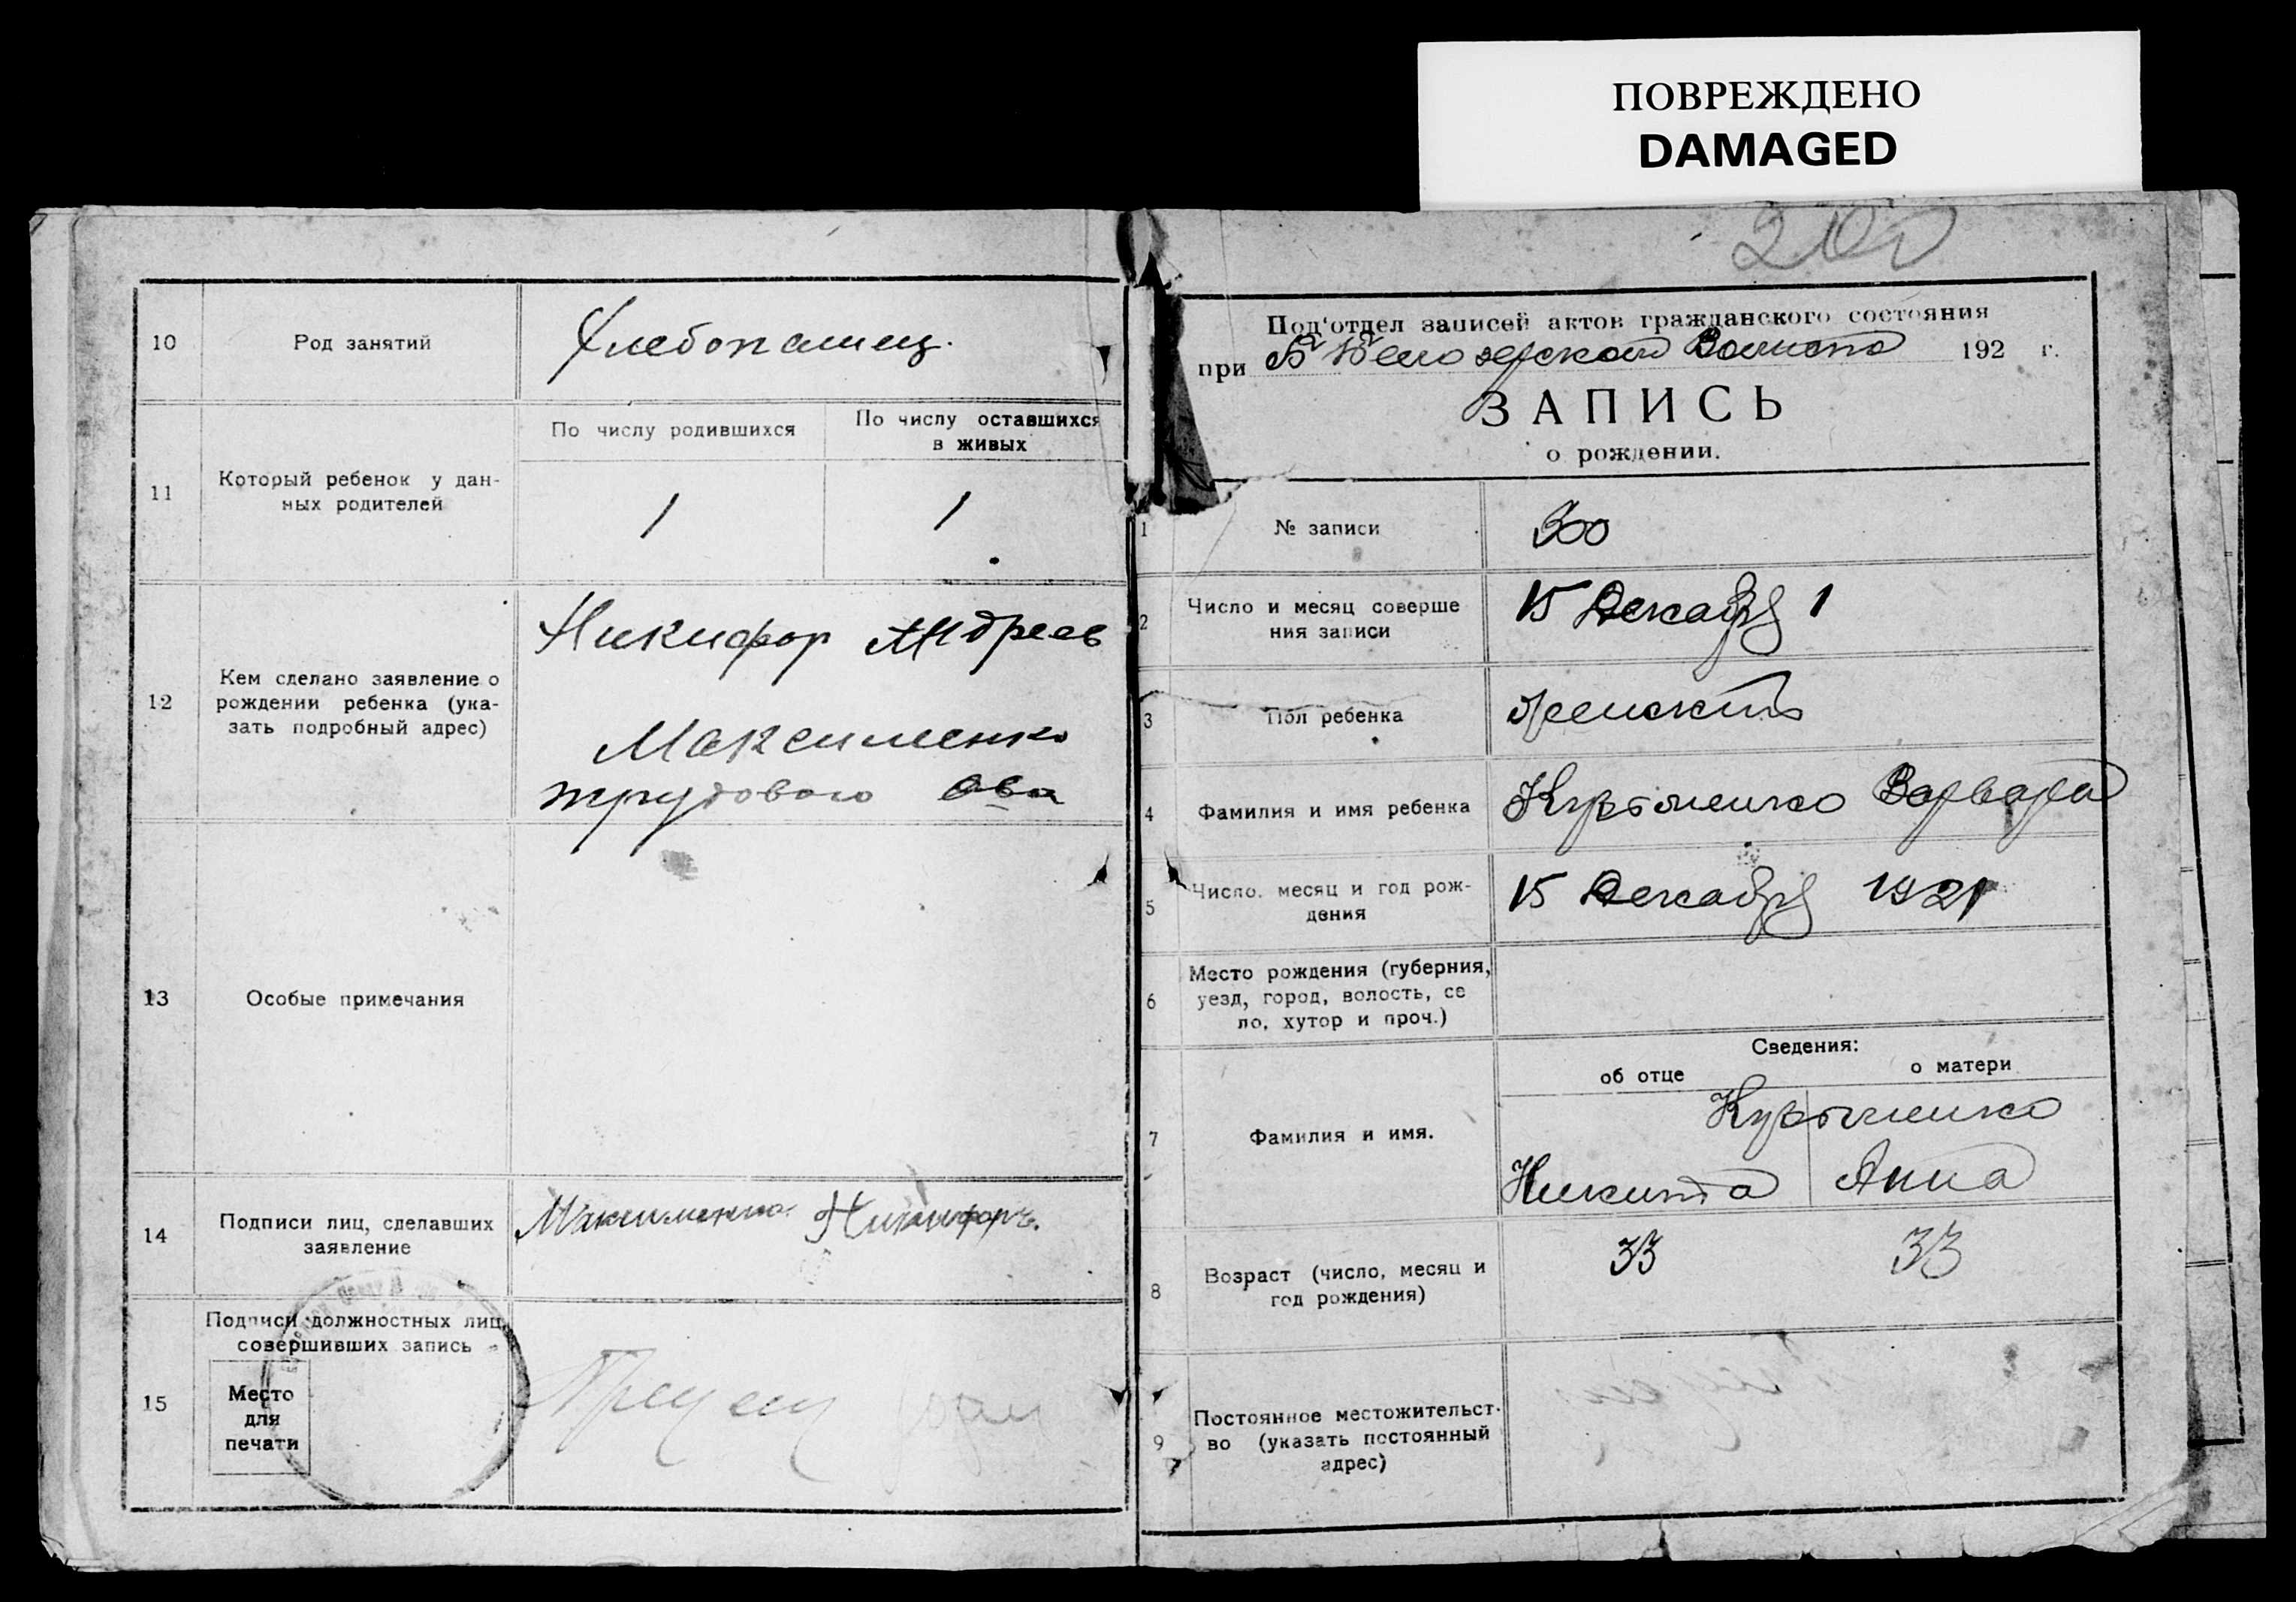 ПОВРЕЖДЕНО
DAMAGED
10
Род занятий
Хлебопашец.
11
Который ребенок у дан-
ных родителей
По числу родившихся
По числу оставшихся
в живых
1
1
12
Кем сделано заявление о
рождении ребенка (ука-
зать подробный адрес)
Никифор Андреев
Максименко
трудового
13
Особые примечания
14
Подписи лиц, сделавших
заявление
Максименко Никифоръ.
15
Подписи должностных лиц,
совершивших запись
Место
для
печати
200
Под‘отдел записей актов гражданского состояния
при Белозерской 192 г.
ЗАПИСЬ
о рождении.
1
№ записи
300
2
Число и месяц соверше
ния записи
15 Декабря 1
3
Пол ребенка
женскій
4
Фамилия и имя ребенка
Варвара
5
Число, месяц и год рож-
дения
15 Декабря 1921
6
Место рождения (губерния,
уезд, город, волость, се
ло, хутор и проч.)
Сведения:
об отце
о матери
7
Фамилия и имя.
Никита
Анна
8
Возраст (число, месяц и
год рождения)
33
33
9
Постоянное местожительст-
во (указать постоянный
адрес)